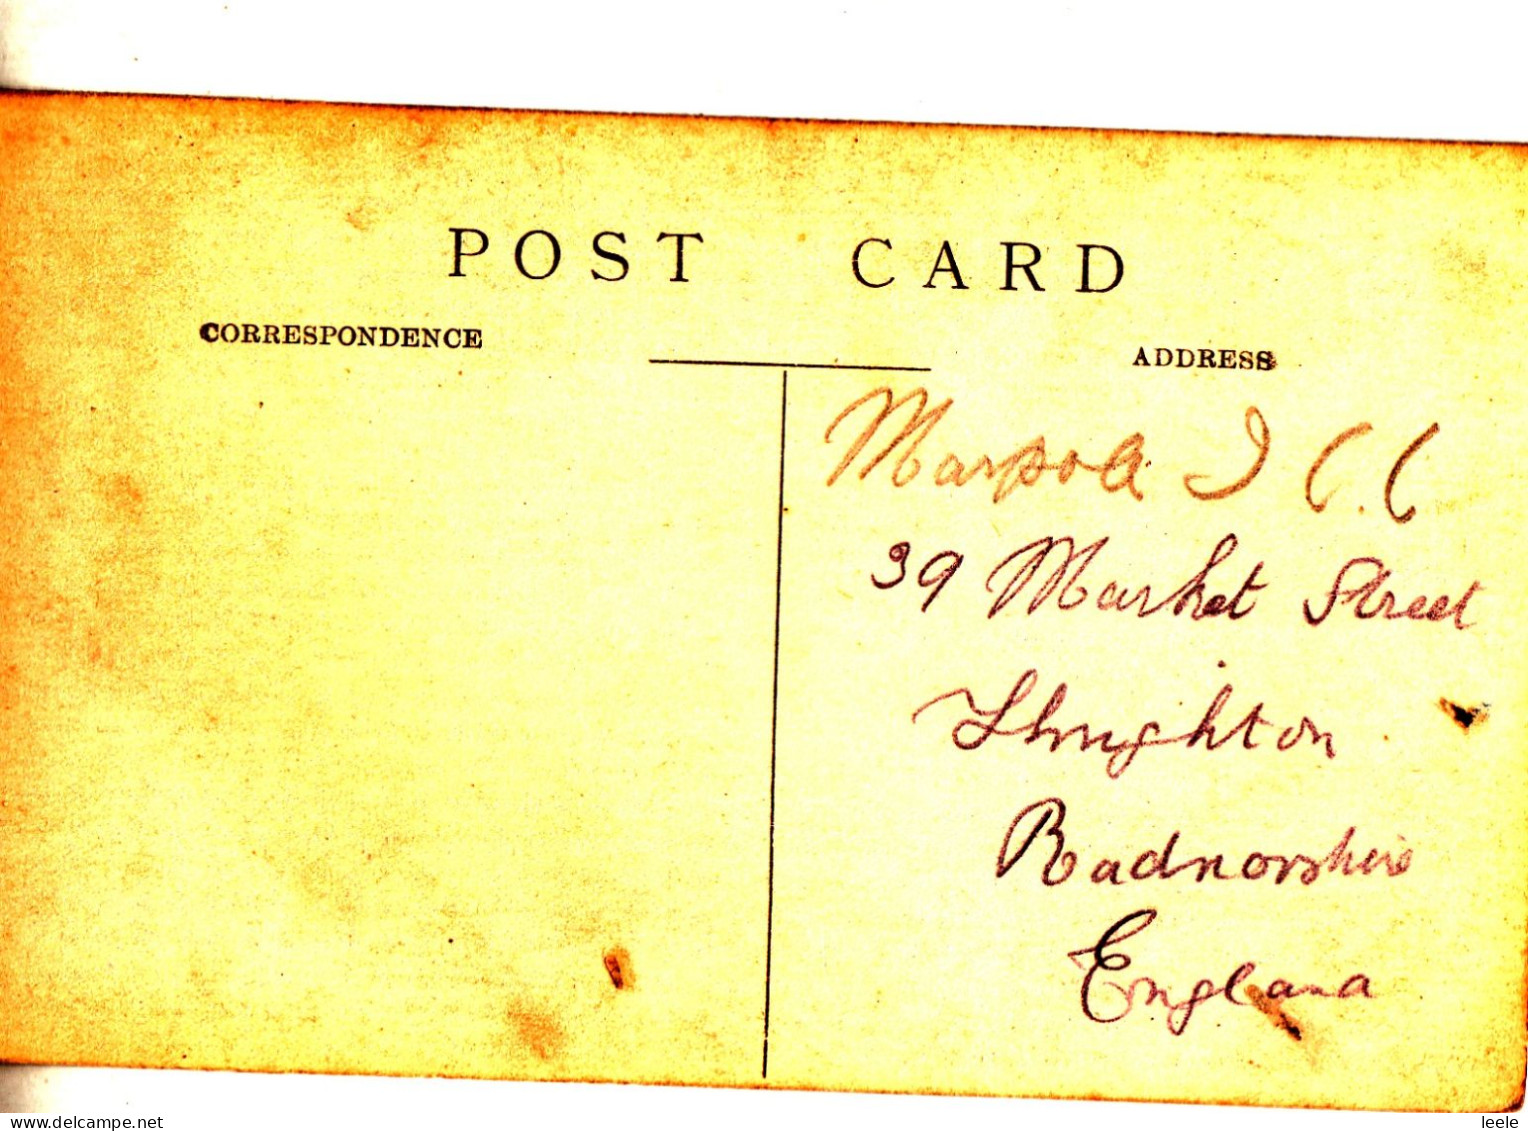 POST CARD
CORRESPONDENCE
ADDRESS
39 Market Street
Radnorshire
England
www.delcampe.net
leele